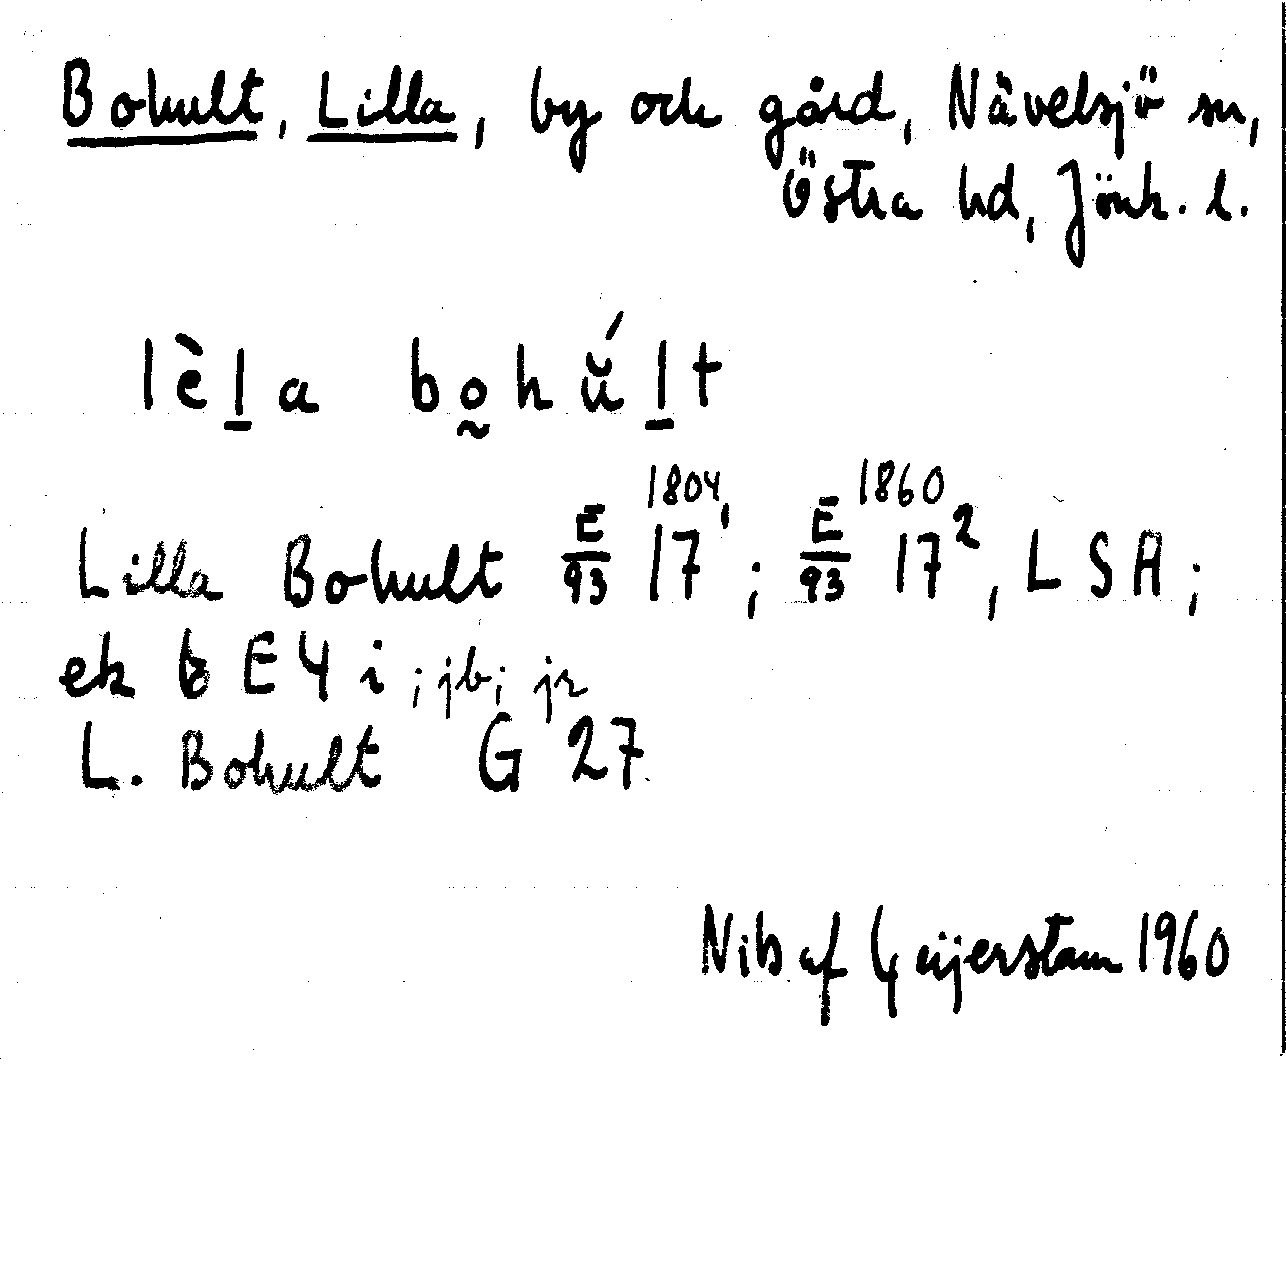 Bohult, Lilla, by och gård, Nävelsjö sn,
Östra hd, Jönk. l.
lèl̲a bo̰hŭ́l̲t
Lilla Bohult E/93 17¹ 1804; E/93 17² 1860, LSA;
ek E4i; jb; jr
L. Bohult G 27
Nils af Geijerstam 1960